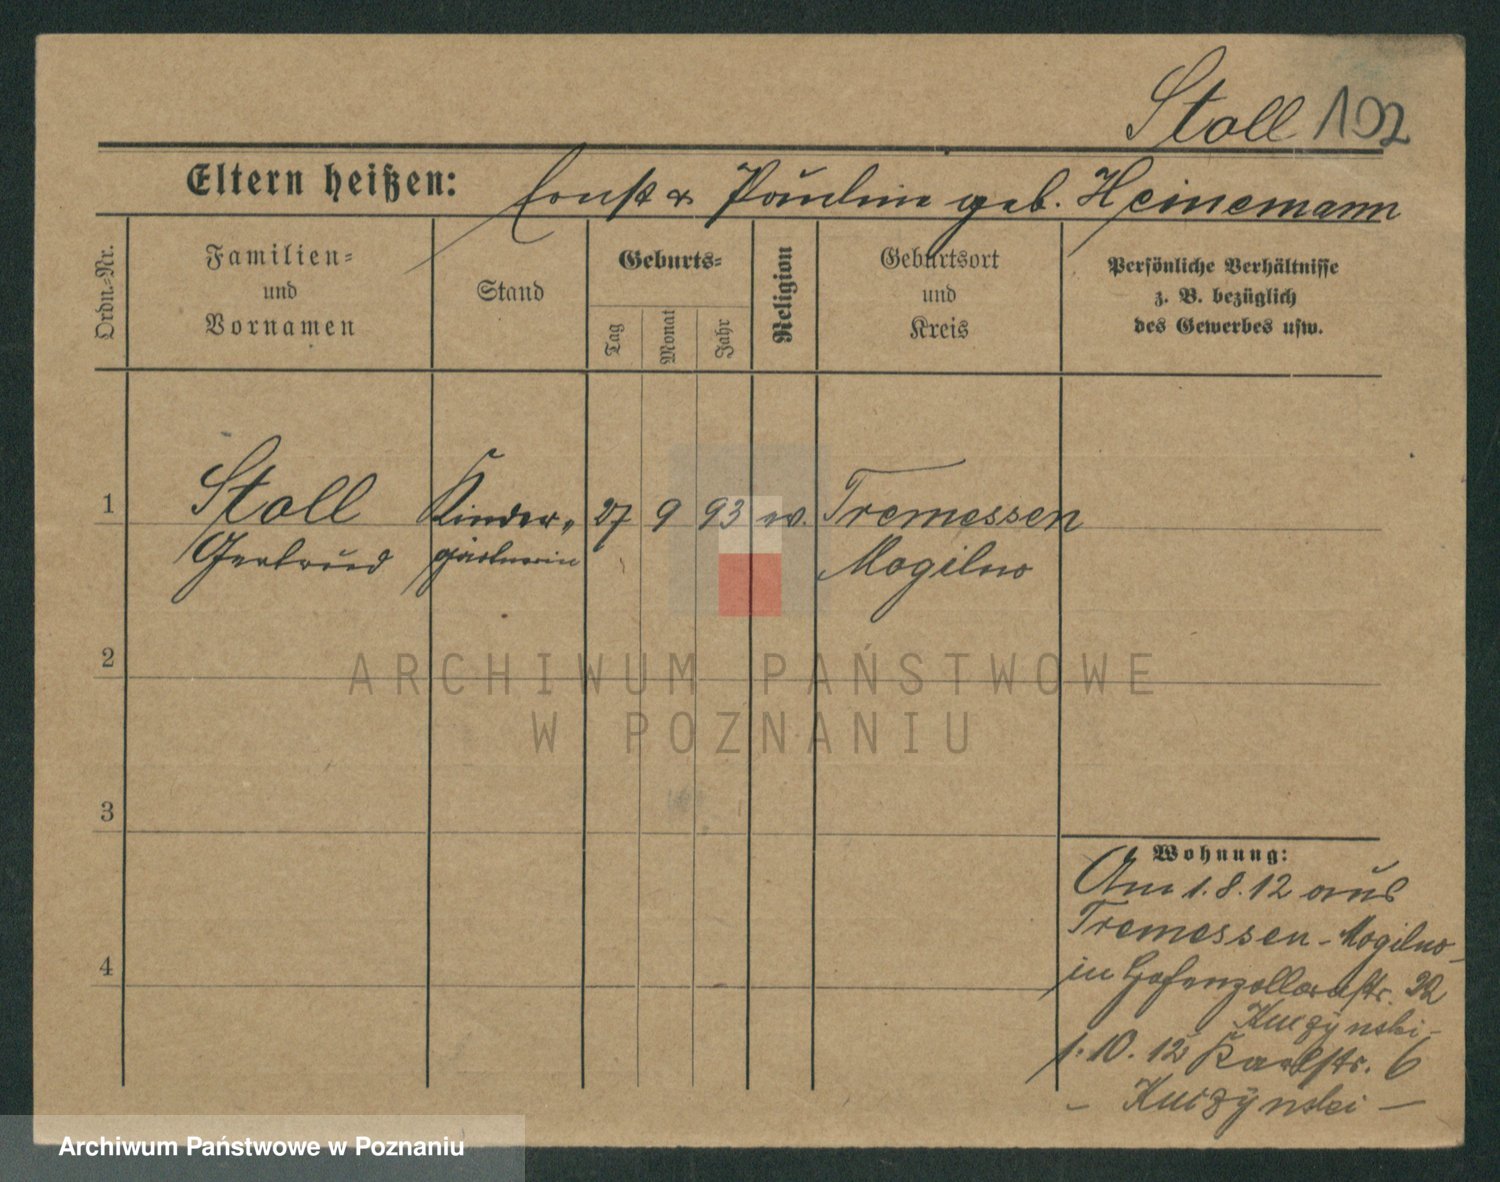 Stoll 102
Eltern heißen: Ernst & Pauline geb. Heinemann
Ordn.-Nr.
Familien-
und
Vornamen
Stand
Geburts-
Tag
Monat
Jahr
Religion
Geburtsort
und
Kreis
Persönliche Verhältnisse
z. B. bezüglich
des Gewerbes usw.
1 Stoll Kinder- 27 9 93 ev. Tremessen
Gertrud gärtnerin Mogilno
2
ARCHIWUM PAŃSTWOWE
W POZNANIU
3
Wohnung:
Am 1.8.12 aus
Tremessen - Mogilno -
4
in Hohenzollernstr. 32
Kuczynski -
1.10.12 Karlstr. 6
- Kuczynski -
Archiwum Państwowe w Poznaniu